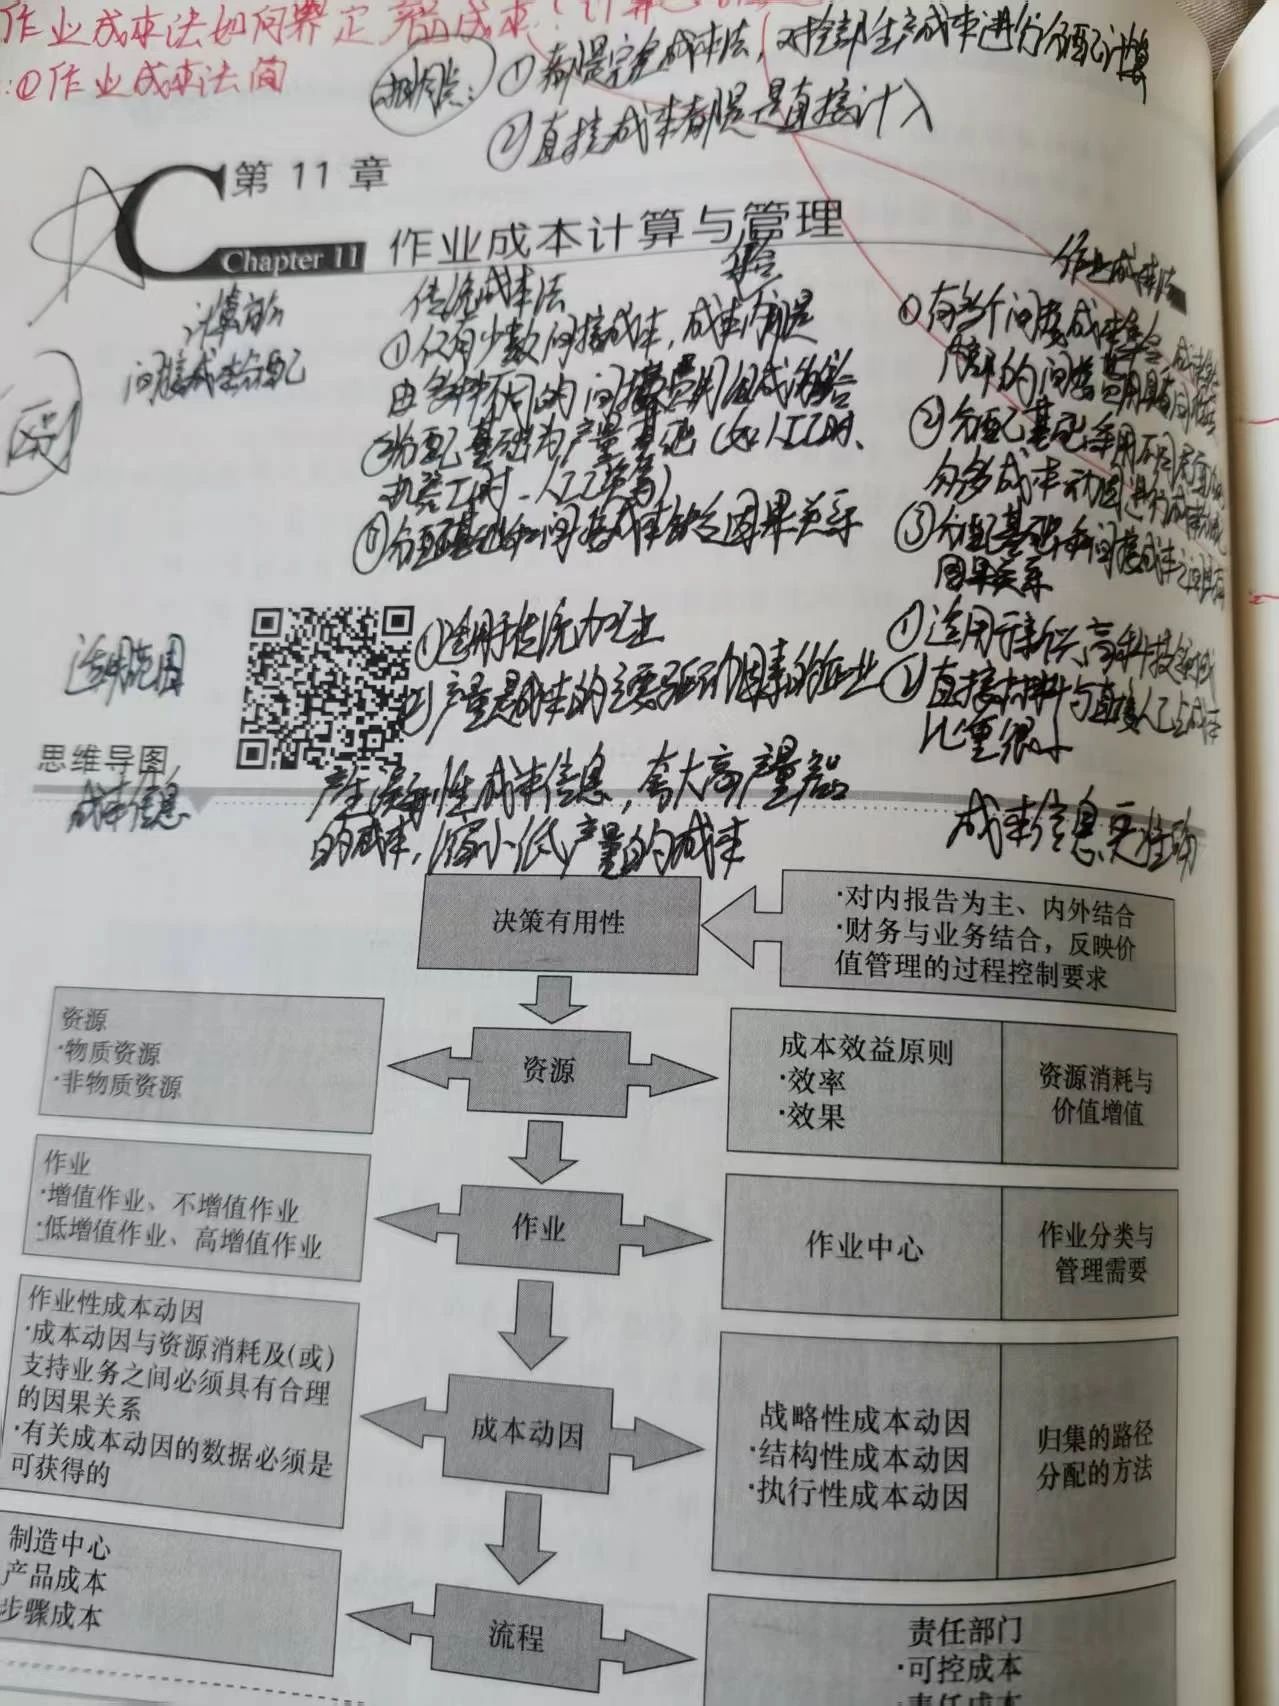 作业成本法如何界定产品成本?计算
:②作业成本法简
相同点:①都是完全成本法,对全部生产成本进行分配计算
②直接成本都是直接计入
第 11 章
Chapter 11 作业成本计算与管理
计算方面
间接成本分配
传统成本法
①仅有少数间接成本,成本内都是
由多种不同的间接费用组成的集合
②分配基础为产量基础(如人工工时、
机器工时、人工工资等)
③分配基础和间接成本缺乏因果关系
区别
作业成本法
①有多个间接成本集合,成本
的间接费用具有同质性
②分配基础采用不同层面的
众多成本动因进行成本分配
③分配基础和间接成本之间具有
因果关系
适用范围
①适用于传统加工业
②产量是成本的主要驱动因素的企业
①适用于新兴高科技领域
②直接材料与直接人工占成本
比重很小
思维导图
成本信息
产生误导性成本信息,夸大高产量产品
的成本,缩小低产量的成本
成本信息更准确
决策有用性
·对内报告为主、内外结合
·财务与业务结合,反映价
值管理的过程控制要求
资源
·物质资源
·非物质资源
资源
成本效益原则
·效率
·效果
资源消耗与
价值增值
作业
·增值作业、不增值作业
·低增值作业、高增值作业
作业
作业中心
作业分类与
管理需要
作业性成本动因
·成本动因与资源消耗及(或)
支持业务之间必须具有合理
的因果关系
·有关成本动因的数据必须是
可获得的
成本动因
战略性成本动因
·结构性成本动因
·执行性成本动因
归集的路径
分配的方法
制造中心
产品成本
步骤成本
流程
责任部门
·可控成本
·责任成本